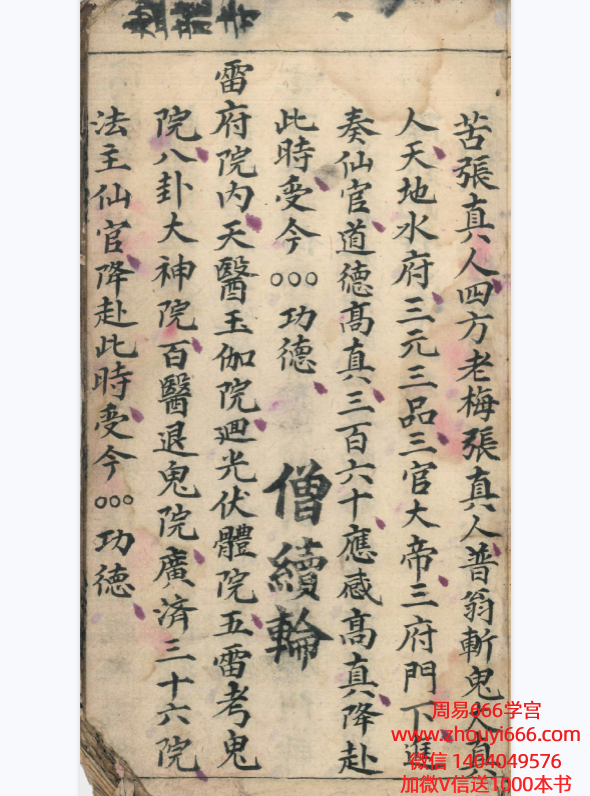 苦張真人四方老梅張真人普翁斬鬼人真
人天地水府三元三品三官大帝三府門下進
奏仙官道德高真三百六十應感高真降赴
此時受今○○○功德
僧續輪
雷府院内天醫玉伽院廻光伏體院五雷考鬼
院八卦大神院百醫退鬼院廣済三十六院
法主仙官降赴此時受今○○○功德
周易666学宫
www.zhouyi666.com
微信 1404049576
加微V信送1000本书